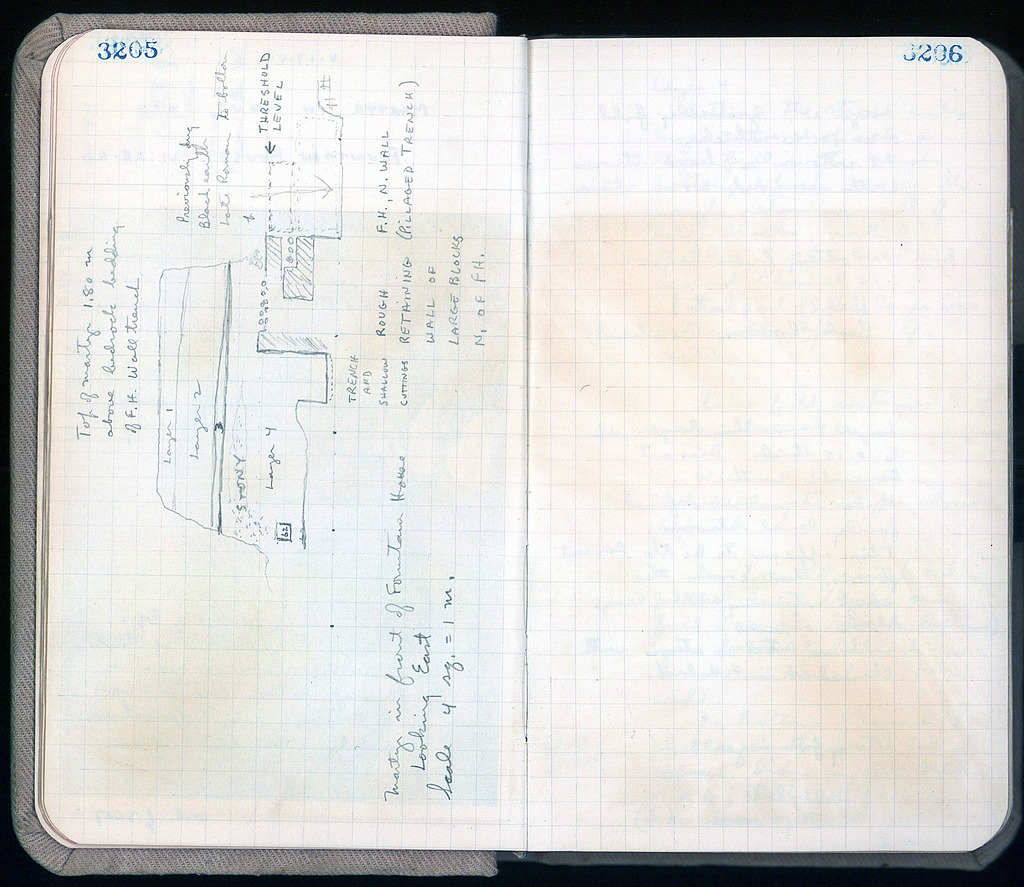 3205
3206
Top of martyr 1.80 m
above bedrock bedding
of F.H. Wall trench
Previously dug
Black earth
Late Roman to bottom
← THRESHOLD
LEVEL
Layer 1
Layer 2
3
STONY
Layer 4
62
TRENCH
AND
SHALLOW
CUTTINGS
ROUGH
RETAINING
WALL OF
LARGE BLOCKS
N. OF F.H.
F.H., N. WALL
(PILLAGED TRENCH)
Martyr in front of Fountain House
Looking East
Scale 4 sq. = 1 m.